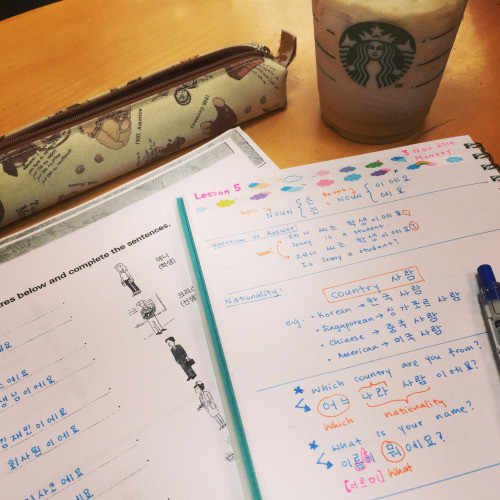 1901 America
res below and complete the sentences.
애니
(학생)
크리스
(선생
에요
에요
생님이에요
김재민이에요
회사원이에요
Lesson 5
3 Nov
Monday
NOUN 은
는
NOUN 이에요
예요
Question vs Answer:
씨는 학생이에요.
Jenny is a student.
씨는 학생이에요?
Is Jenny a student?
Nationality:
country 사람
eg. · Korean → 한국 사람
· Singaporean → 싱가포르 사람
· Chinese → 중국 사람
· American → 미국 사람
Which country are you from?
어느 나라 사람이에요?
Which nationality
What is your name?
이름이 뭐예요?
[이르미] What